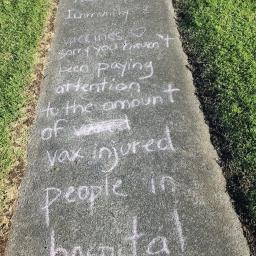 Immunity
vaccines ♡
sorry you haven't
been paying
attention
to the amount
of
vax injured
people in
hospital